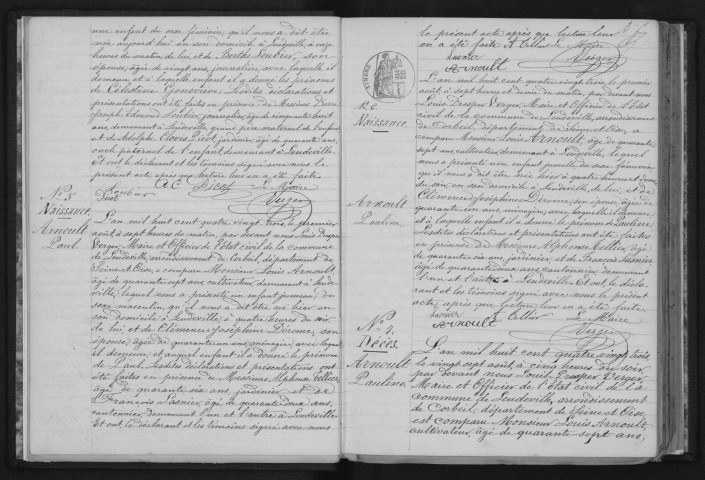 une enfant du sexe féminin, qu'il nous a dit être
née aujourd'hui en son domicile à Leudeville, à onze
heures du matin, de lui et de Berthe Loubier, son
épouse, âgée de vingt ans, journalière, avec laquelle il
demeure, et à laquelle enfant il a donné les prénoms
de Célestine Geneviève. Lesdites déclarations et
présentations ont été faites en présence de Messieurs Pierre
Joseph Edmond Loubier, journalier, âgé de cinquante huit
ans, demeurant à Leudeville, grand père maternel de l'enfant
et de Adolphe Clovis Picot, journalier, âgé de quarante ans,
oncle paternel de l'enfant demeurant à Leudeville.
Et ont le déclarant et les témoins signé avec nous le
présent acte après que lecture leur en a été faite.
Le Maire
Picot
Verger
No 5
Naissance.
Arnoult
Paul
L'an mil huit cent quatre vingt trois, le premier
août à sept heures du matin, par devant nous Louis Prosper
Verger, Maire et Officier de l'Etat civil de la commune
de Leudeville, arrondissement de Corbeil, département de
Seine et Oise, a comparu Monsieur Louis Arnoult,
âgé de quarante sept ans, cultivateur, demeurant à Leude-
ville, lequel nous a présenté un enfant jumeau, du
sexe masculin, qu'il nous a dit être né hier en
son domicile à Leudeville, à quatre heures du soir,
de lui et de Clémence Joséphine Déronce, son
épouse, âgée de quarante un ans, ménagère, avec laquelle
il demeure, et auquel enfant il a donné le prénom
de Paul. Lesdites déclarations et présentations ont
été faites en présence de Messieurs Alphonse Cellier,
âgé de quarante six ans, jardinier, et de
François Lasnier, âgé de quarante deux ans,
cantonnier, demeurant l'un et l'autre à Leudeville.
Et ont le déclarant et les témoins signé avec nous
le présent acte après que lecture leur
en a été faite. A Cellier Le Maire
Lasnier Verger
Arnoult
No 6.
Naissance.
Arnoult
Pauline
L'an mil huit cent quatre vingt trois, le premier
août, à sept heures et demie du matin, par devant nous
Louis Prosper Verger, Maire et Officier de l'Etat
civil de la commune de Leudeville, arrondissement
de Corbeil, département de Seine et Oise, a
comparu Monsieur Louis Arnoult, âgé de quarante
sept ans, cultivateur, demeurant à Leudeville, lequel
nous a présenté une enfant jumelle du sexe féminin
qu'il nous a dit être née hier à quatre heures et demie
du soir, en son domicile à Leudeville, de lui, et de
Clémence Joséphine Déronce, son épouse, âgée de
quarante un ans, ménagère, avec laquelle il demeure,
et à laquelle enfant il a donné le prénom de Pauline.
Lesdites déclarations et présentations ont été faites
en présence de Messieurs Alphonse Cellier, âgé
de quarante six ans, jardinier, et de François Lasnier,
âgé de quarante deux ans, cantonnier, demeurant
l'un et l'autre à Leudeville. Et ont le décla-
rant et les témoins signé avec nous le présent
acte, après que lecture leur en a été faite.
Lasnier A Cellier Le Maire
Arnoult Verger
No 7.
Décès.
Arnoult
Pauline
L'an mil huit cent quatre vingt trois
le vingt sept août à cinq heures du soir,
par devant nous Louis Prosper Verger,
Maire et Officier de l'état civil de la
commune de Leudeville, arrondissement
de Corbeil, département de Seine et Oise,
est comparu Monsieur Louis Arnoult,
cultivateur, âgé de quarante sept ans,